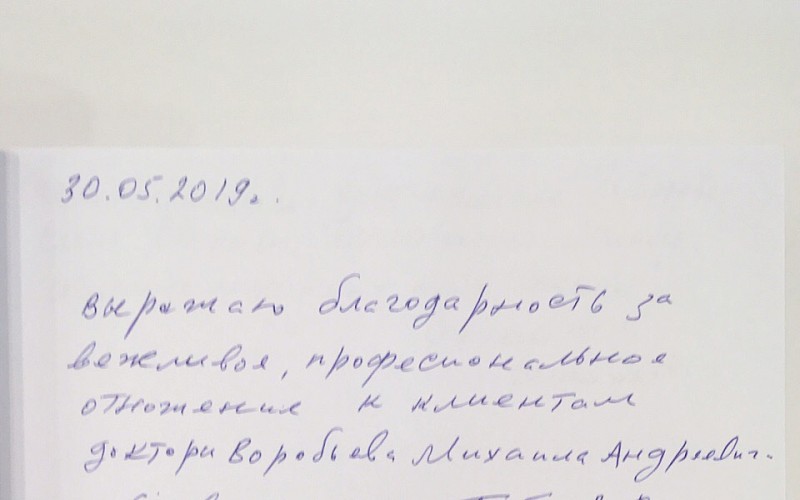 30.05.2019г.
выражаю благодарность за
вежливое, професиональное
отножение к клиентам
доктора Воробьева Михаила Андреевич-